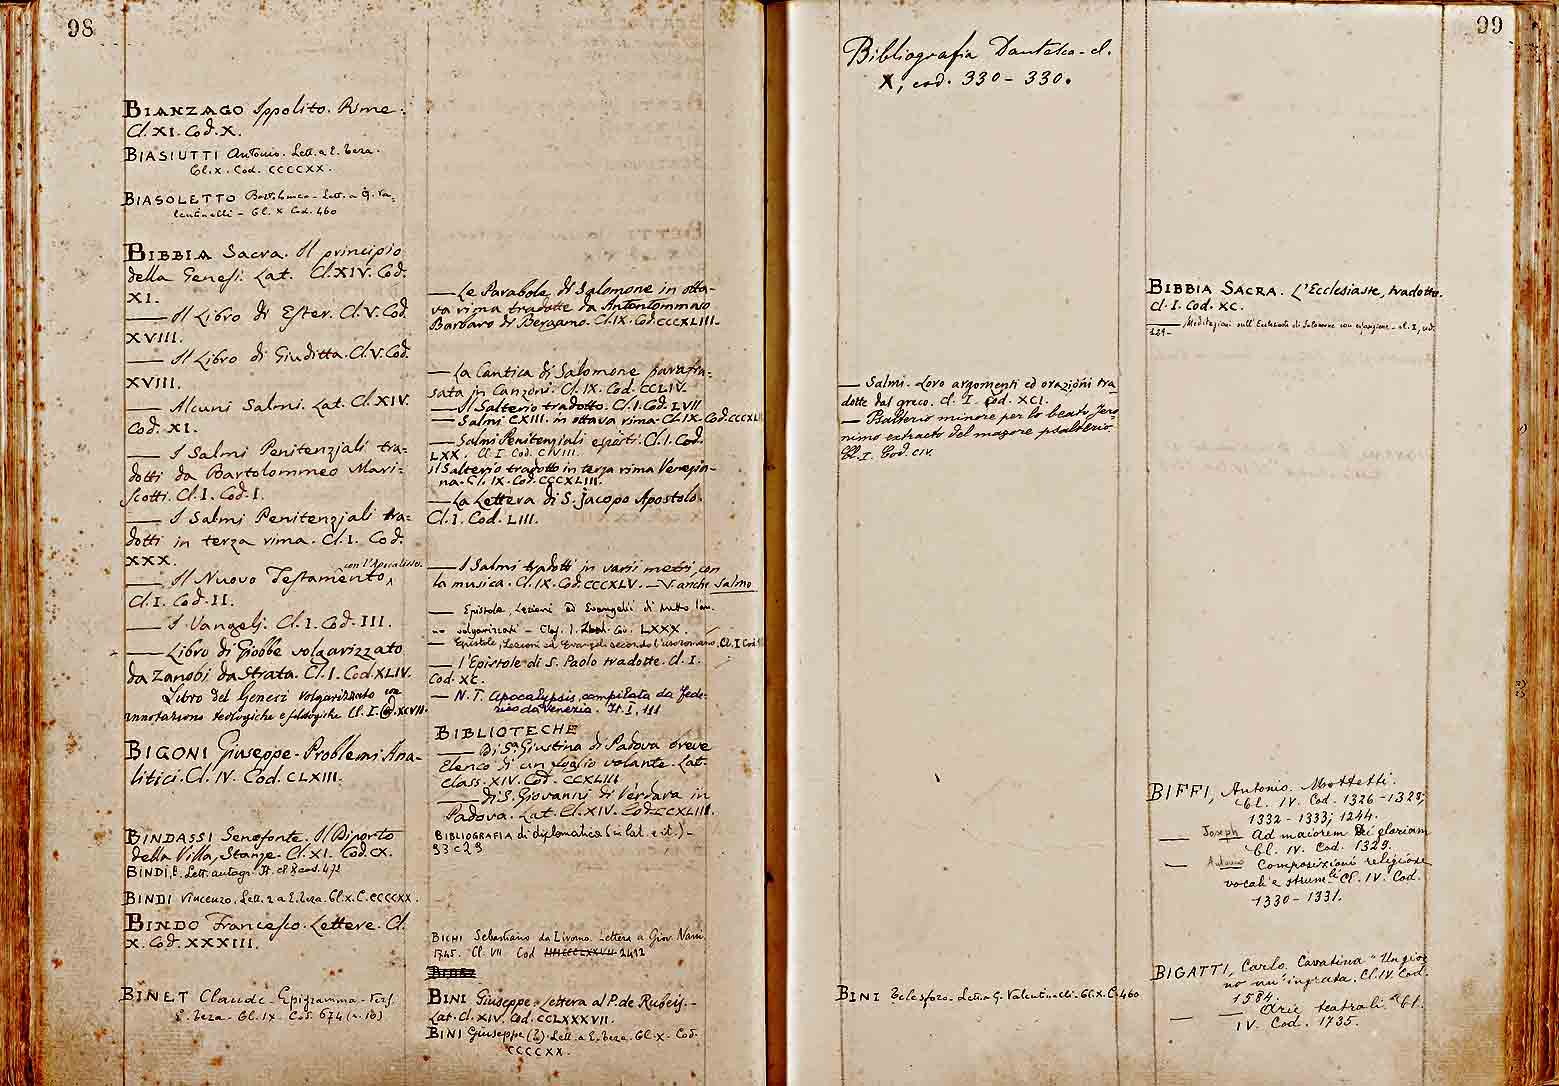 98
BIANZAGO Ippolito. Rime.
Cl. XI. Cod. X.
BIASIUTTI Antonio. Lett. a E. Teza.
Cl. X. Cod. CCCCXX.
BIASOLETTO Bartolomeo - Lett. a G. Va=
lentinelli - Cl. X Cod. 460
BIBBIA Sacra. Il principio
della Genesi. Lat. Cl. XIV. Cod.
XI.
— Il Libro di Ester. Cl. V. Cod.
XVIII.
— Il Libro di Giuditta. Cl. V. Cod.
XVIII.
— Alcuni Salmi. Lat. Cl. XIV.
Cod. XI.
— I Salmi Penitenziali tra=
dotti da Bartolommeo Mari=
scotti. Cl. I. Cod. I.
— I Salmi Penitenziali tra=
dotti in terza rima. Cl. I. Cod.
XXX.
— Il Nuovo Testamento, con l'Apocalisse.
Cl. I. Cod. II.
— I Vangelj. Cl. I. Cod. III.
— Libro di Giobbe volgarizzato
da Zanobi da Strata. Cl. I. Cod. XLIV.
Libro del Genesi volgarizzato con
annotazioni teologiche e filologiche Cl. I. Cod. XCVII.
BIGONI Giuseppe. Problemi Ana=
litici. Cl. IV. Cod. CLXIII.
BINDASSI Senofonte. Il Diporto
della Villa, Stanze. Cl. XI. Cod. CX.
BINDI, E. Lett. autogr. It. cl X cod. 472
BINDI Vincenzo. Lett. 2 a E. Teza. Cl. X. C. CCCCXX.
BINDO Francesco. Lettere. Cl.
X. Cod. XXXIII.
BINET Claude - Epigramma - Vers.
E. Teza - Cl. IX Cod. 674 (n. 1b)
— Le Parabole di Salomone in otta=
va rima tradotte da Antontommaso
Barbaro di Bergamo. Cl. IX. Cod. CCCXLIII.
— La Cantica di Salomone parafra=
sata in Canzoni. Cl. IX. Cod. CCLIV.
— Il Salterio tradotto. Cl. I. Cod. LVII
— Salmi CXIII. in ottava rima. Cl. IX. Cod. CCCXLI
— Salmi Penitenziali esposti. Cl. I. Cod.
LXX. Cl. I Cod. CVIII.
il Salterio tradotto in terza rima Venezia=
na. Cl. IX. Cod. CCCXLIII.
— La Lettera di S. Jacopo Apostolo.
Cl. I. Cod. LIII.
— I Salmi tradotti in varii metri con
la musica. Cl. IX. Cod. CCCXLV. — V. anche Salmo
— Epistole, Lezioni ed Evangelii di tutto l'an
no volgarizzati - Clas. I. Cod. LXXX.
— Epistole, Lezioni ed Evangeli secondo l'uso romano. Cl. I Cod.
— l'Epistole di S. Paolo tradotte. Cl. I.
Cod. XC.
— N. T. Apocalypsis compilata da Fede-
rico da Venezia. It. I, 111
BIBLIOTECHE
— Di Sa Giustina di Padova breve
Elenco di un foglio volante. Lat.
class. XIV. Cod. CCXLIII
— di S. Giovanni di Verdara in
Padova. Lat. Cl. XIV. Cod. CCXLIII.
BIBLIOGRAFIA di diplomatica (in lat. e it.) -
93 c 29
BICHI Sebastiano da Livorno. Lettera a Giov. Nani.
1745. Cl. VII. Cod 2412
BINI Giuseppe - lettera al P. de Rubeis. -
Lat. Cl. XIV. Cod. CCLXXXVII.
BINI Giuseppe (2). Lett. a E. Teza. Cl. X. Cod.
CCCCXX.
Bibliografia Dantesca - cl.
X, cod. 330 - 330.
— Salmi. Loro argomenti ed orazioni tra
dotte dal greco. Cl. I. Cod. XCI.
— Psalterio minore per lo beato Jero
nimo extracto del magore psalterio.
Cl. I. Cod. CIV.
BINI Telesforo. Lett. a G. Valentinelli. Cl. X. C. 460
99
BIBBIA SACRA. L'Ecclesiaste, tradotto.
Cl. I. Cod. XC.
— Meditazioni sull'Ecclesiaste di Salomone con spiegazione - cl. I, cod.
121-
BIFFI, Antonio. Mottetti.
Cl. IV. Cod. 1326 - 1328;
1332 - 1333; 1244.
— Joseph Ad maiorem Dei gloriam
Cl. IV. Cod. 1329.
— Antonio Composizioni religiose
vocali e strum.li Cl. IV. Cod.
1330 - 1331.
BIGATTI, Carlo. Cavatina "Un gior
no un'ingrata. Cl. IV Cod.
1584.
— — Arie teatrali Cl.
IV. Cod. 1735.